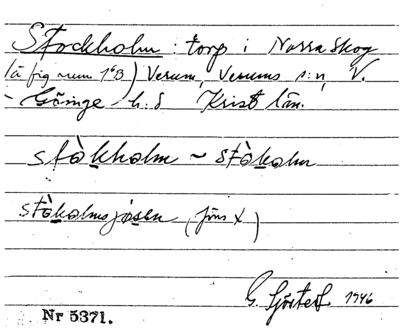 Stockholm : torp i Norra Skog
(å fig num 1 B) Verum, Verums s:n, V.
Göinge h:d Krist län.
stòkholm ~ stòkolm
stòkolmsjösen (Jöns X)
G. Sjöstedt. 1946
Nr 5371.